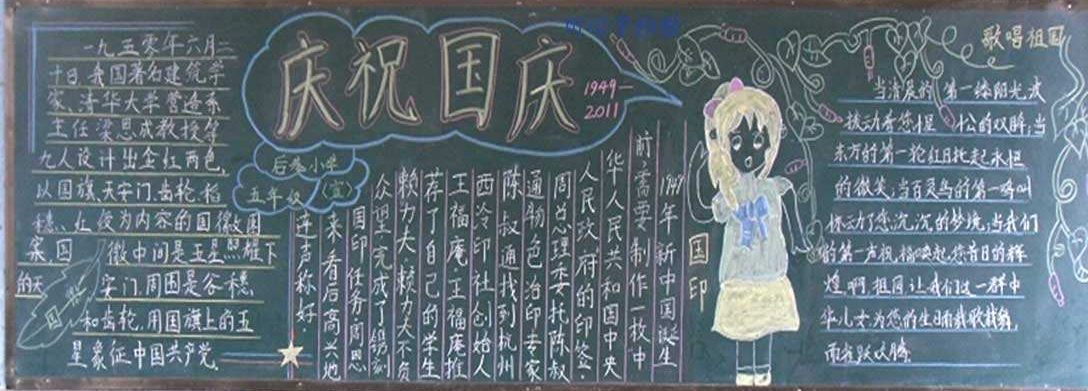 一九五零年六月二
十日我国著名建筑学
家、清华大学营造系
主任梁思成教授等
九人设计出金红两色
以国旗、天安门、齿轮、稻
穗、红绶为内容的国徽
案，国徽中间是五星照耀下
的天安门，周围是谷穗
和齿轮，用国旗上的五
星象征中国共产党
国徽
庆祝国庆
1949—
2011
后巷小学
五年级(宣)
国印
1949年新中国诞生
前，需要制作一枚中
华人民共和国中央
人民政府的印签，
周总理委托陈叔
通物色治印专家
陈叔通找到杭州
西泠印社创始人
王福庵，王福庵推
荐了自己的学生
赖力夫，赖力夫不负
众望完成了镌刻
国印任务周恩
来看后高兴地
连声称好。
歌唱祖国
当清晨的第一缕阳光波
松的双眸；当
东方的第一轮红日托起永恒
的微笑；当百灵鸟的第一鸣叫
惊动了您沉沉的梦境；当我们
的第一声祝福唤起您昔日的辉
煌，啊，祖国让我们这一群中
华儿女为您的生日而载歌载舞，
而雀跃欢腾